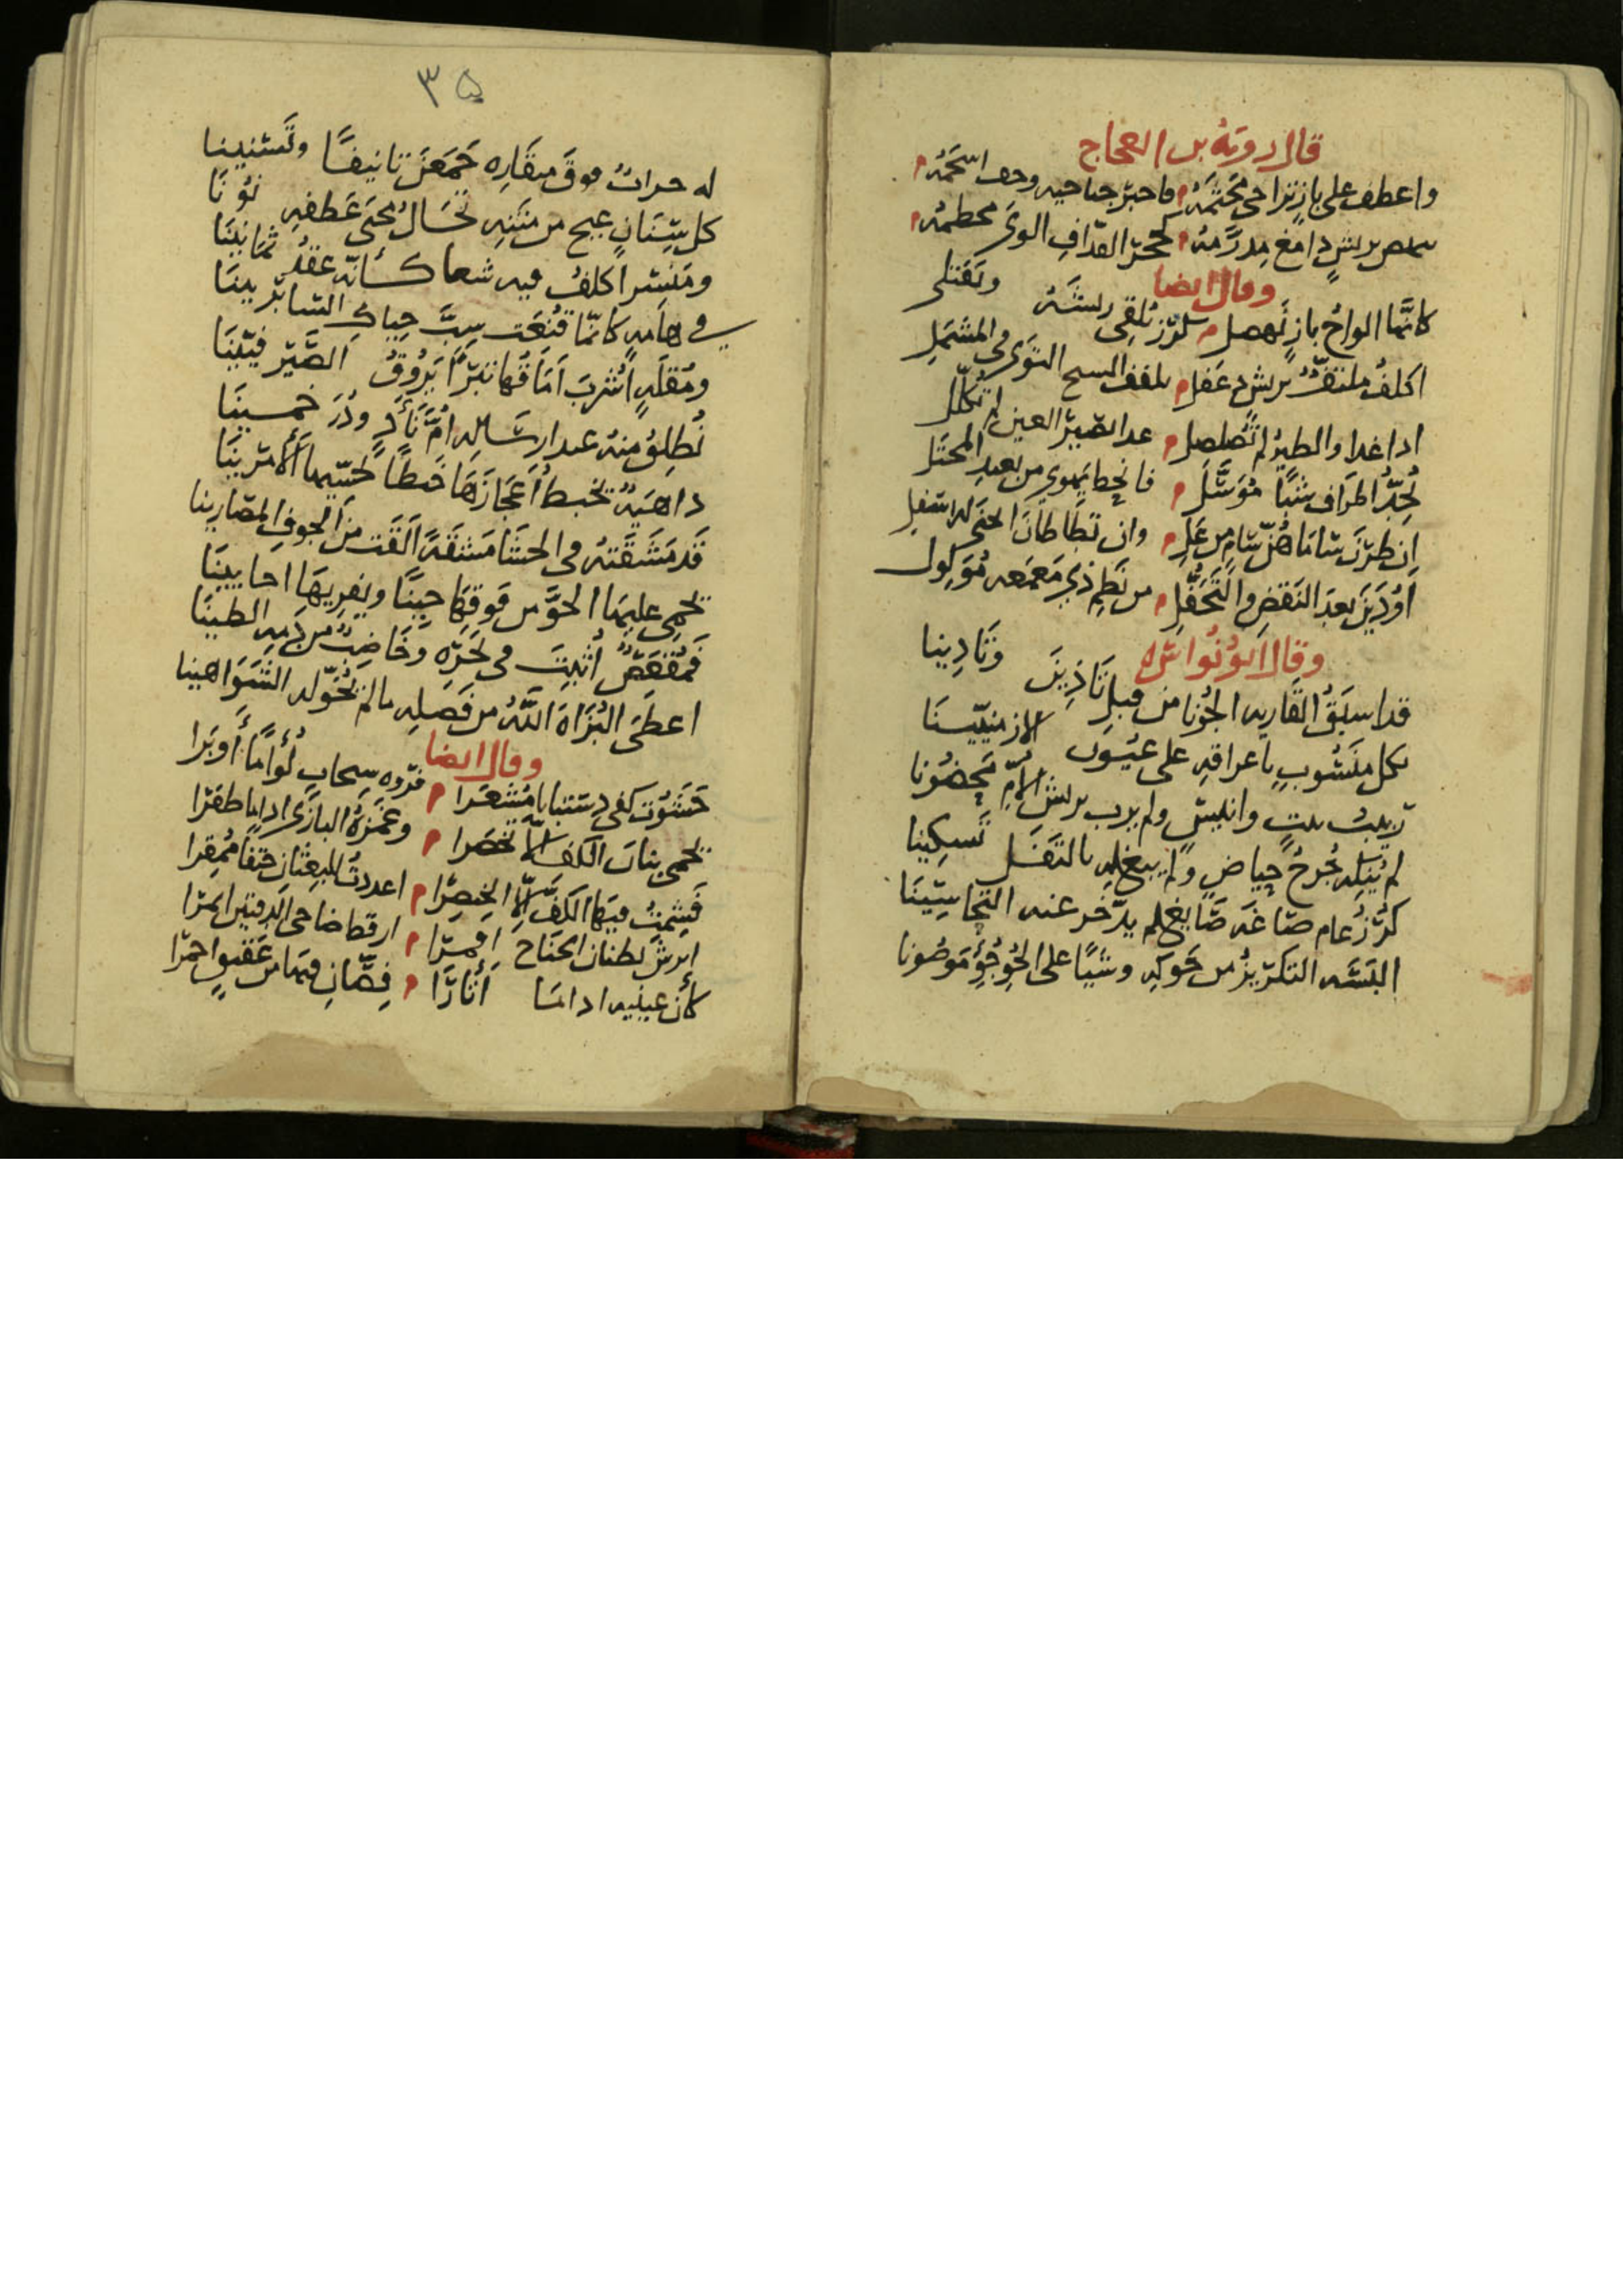 قال روبة بن العجاج
واعطف على باز تراخى مجثمه فاحبتر جناحيه وحف اسحمه
بريش دامغ مدرمه كحجر القذاف الوى محطمه
وقال ايضا
كانما الواح باز نهصل كرز يلقى ريشه ويفتلى
اكلف ملتف بريش دغفل تلفف المسح التوى في المشمل
اذا غدا والطير لم تصلصل عند الصبير العين لم تكلل
يحد اطراف شبا موسل فانحط يهوي من بعيد المختل
ان طرن ساماهن سام من عل وان تطاطان انحنى لاسفل
اوذين بعد النقض والتحفل من نطم ذي معمعه موكول
وقال ابو نواس
قد اسبق القارية الجونا من قبل تاذين وتادينا
بكل منسوب باعراقه على عيون الارمنيينا
ربيب بيت وانيس ولم يرب بريش الام محضونا
لم ينله جرح حياص ولم يبغ له بالتفل تسكينا
كرز عام صاغه صايغ لم يدخر عنه التحاسينا
البسه التكريز من حوكه وشيا على الجوجو موضونا
٣٥
له حراب فوق منقاره جمعن تانيفا وتسنينا
كل سنان عيج من متنه تخال محنى عطفه نونا
ومنسر اكلف فيه شغا كأنه عقد ثمانينا
في هامه كانما قنعت سب حياك السابريينا
ومقله اشرب اماقها تبرا يروق الصير فيينا
نطلق منه عند ارساله ام نآد ودر خمسينا
داهيه تخبط اعجازها خبطا تحسيها الامرينا
قد مشقته في الحشا مشقه القت من الجوف المصارينا
تحمى عليها الجو من فوقها حينا ويفريها احايينا
فمقعص اثبت في نحره وخاضب من دمه الطينا
اعطى البزاة الله من فضله مالم يخوله الشواهينا
وقال ايضا
حشوت كفى دستبانا مشعرا فروه سنجاب لؤاما أوبرا
تحمى بنان الكف الا تخصرا وغمزة البازى اذا ما طفرا
فشمت فيها الكف الا الخنصرا اعددت للبغثان حتفا ممقرا
ابرش بطنان الجناح اقمرا ارقط ضاحى الدفتين انمرا
كأن عينيه اذا ما أثارا فصان قيضا من عقيق احمرا